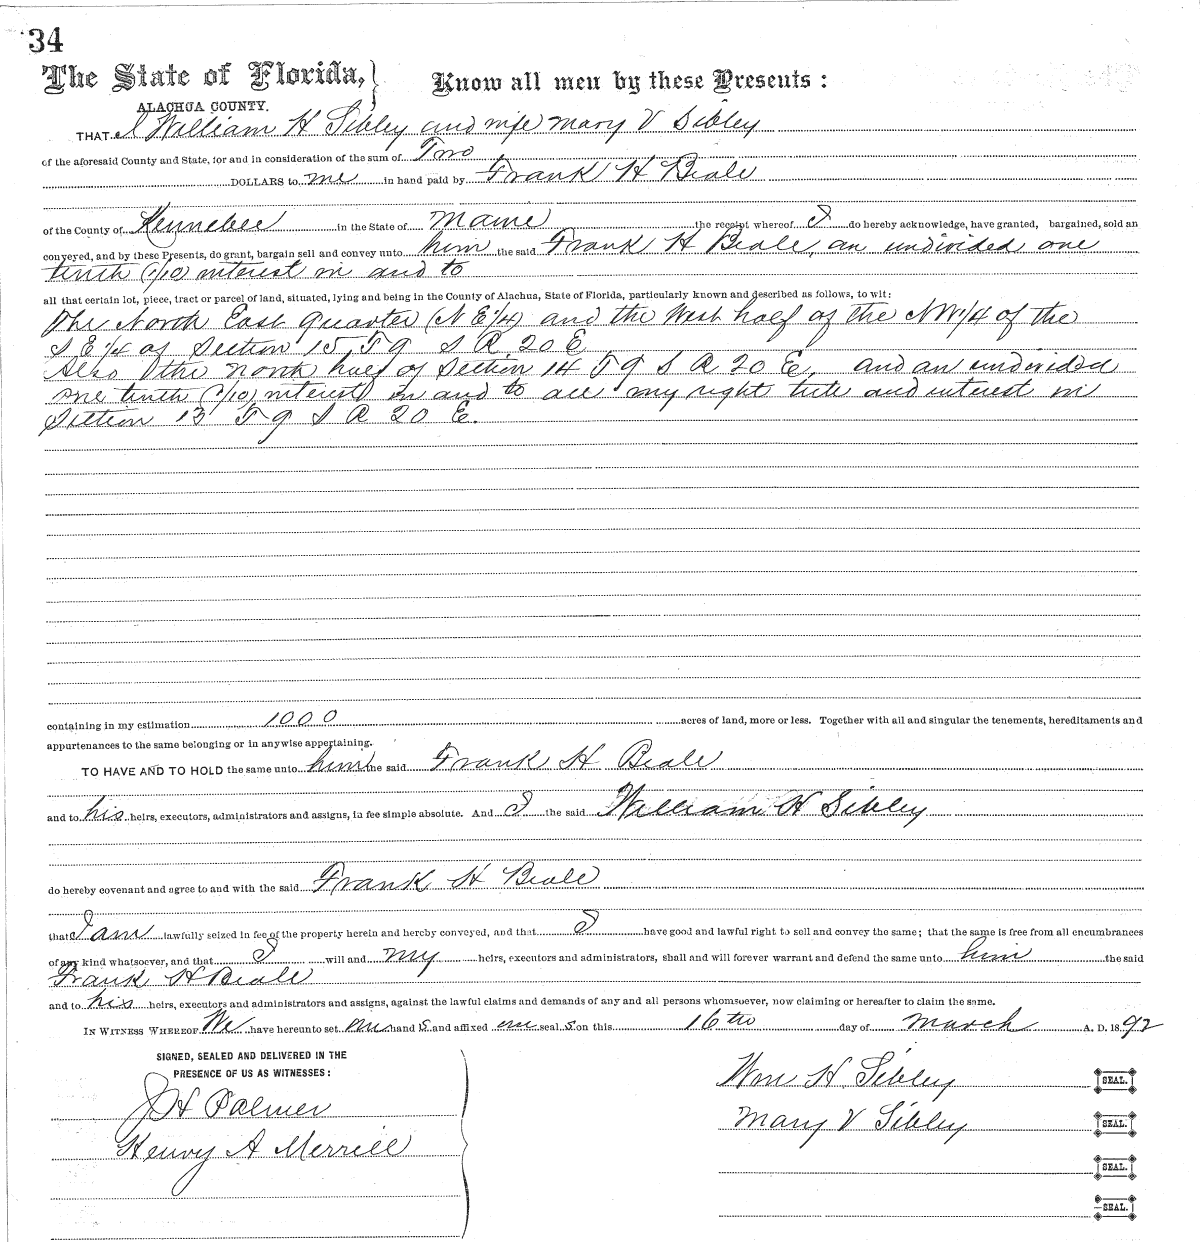 34
The State of Florida, Know all men by these Presents:
ALACHUA COUNTY.
THAT I William H Sibley and wife Mary V Sibley
of the aforesaid County and State, for and in consideration of the sum of Two
DOLLARS to me in hand paid by Frank H Beale
of the County of Kennebec in the State of Maine the receipt whereof I do hereby acknowledge, have granted, bargained, sold an
conveyed, and by these Presents, do grant, bargain sell and convey unto him the said Frank H Beale, an undivided one
tenth (1/10) interest in and to
all that certain lot, piece, tract or parcel of land, situated, lying and being in the County of Alachua, State of Florida, particularly known and described as follows, to wit:
The North East quarter (N E 1/4) and the West half of the NW 1/4 of the
S E 1/4 of Section 15 T 9 S R 20 E
Also the north half of Section 14 T 9 S R 20 E, and an undivided
one tenth (1/10) interest in and to all my right title and interest in
Section 13 T 9 S R 20 E.
containing in my estimation 1000 acres of land, more or less. Together with all and singular the tenements, hereditaments and
appurtenances to the same belonging or in anywise appertaining.
TO HAVE AND TO HOLD the same unto him the said Frank H Beale
and to his heirs, executors, administrators and assigns, in fee simple absolute. And I the said William H Sibley
do hereby covenant and agree to and with the said Frank H Beale
that I am lawfully seized in fee of the property herein and hereby conveyed, and that I have good and lawful right to sell and convey the same; that the same is free from all encumbrances
of any kind whatsoever, and that I will and my heirs, executors and administrators, shall and will forever warrant and defend the same unto him the said
Frank H Beale
and to his heirs, executors and administrators and assigns, against the lawful claims and demands of any and all persons whomsoever, now claiming or hereafter to claim the same.
IN WITNESS WHEREOF We have hereunto set our hand s and affixed our seal s on this 16th day of March A. D. 1892
SIGNED, SEALED AND DELIVERED IN THE
PRESENCE OF US AS WITNESSES:
Wm H Sibley SEAL.
J H Palmer
Mary V Sibley SEAL.
Henry A Merrill
SEAL.
SEAL.